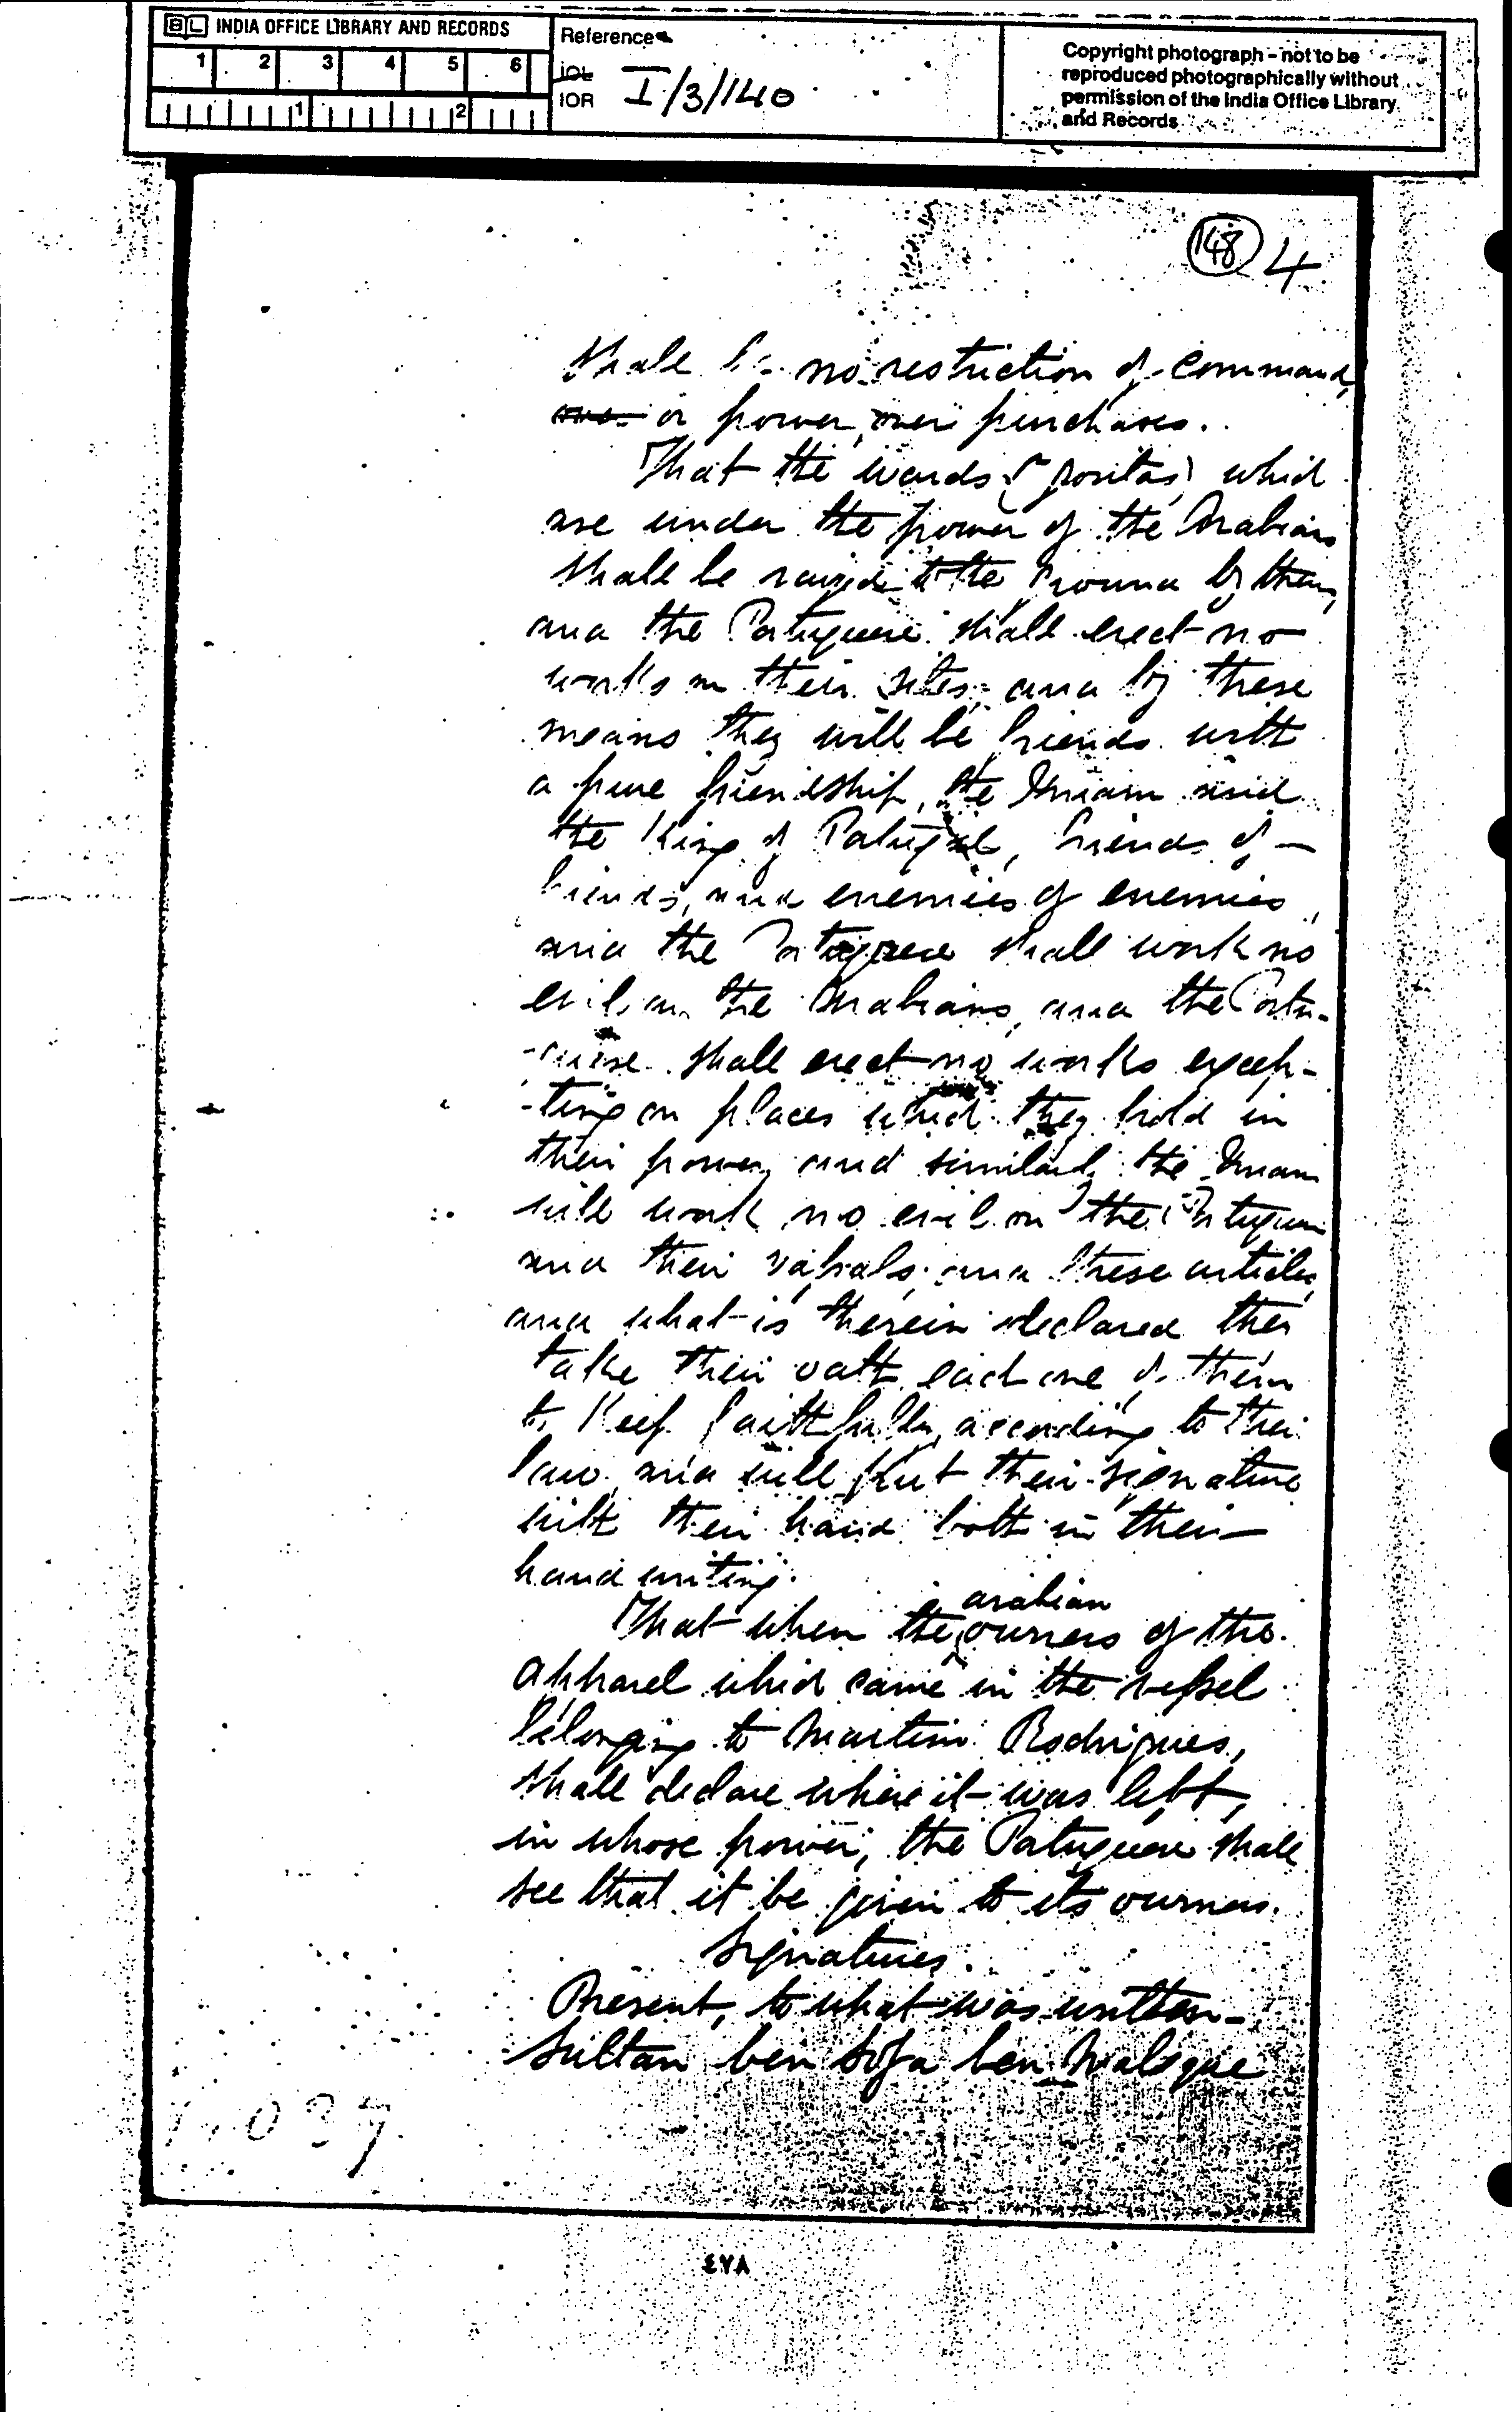 BL INDIA OFFICE LIBRARY AND RECORDS
1 2 3 4 5 6
1 2
Reference
IOL
IOR I/3/140
Copyright photograph - not to be
reproduced photographically without
permission of the India Office Library
and Records
148 4
shall be no restriction of command,
or power, over purchases.
That the wards which
are under the power of the Arabians
shall be razed to the ground by them,
and the Portuguese shall erect no
works on their sites, and by these
means they will be friends with
a pure friendship, the Imam and
the King of Portugal, friends of
friends, and enemies of enemies,
and the Portuguese shall work no
evil on the Arabians, and the Portu-
-guese shall erect no works excep-
-ting on places which they hold in
their power, and similarly the Imam
will work no evil on the Portuguese
and their vassals; and these articles,
and what is therein declared they
take their oath each one of them
to keep faithfully, according to their
law, and will put their signature
with their hand both in their
hand writing.
That when the arabian owners of the
apparel which came in the vessel
belonging to Martim Rodrigues,
shall declare where it was left,
in whose power, the Portuguese shall
see that it be given to its owners.
Signatures.
Present, to what was written -
Sultan ben Sofa ben Maleque
039
٤٧٨